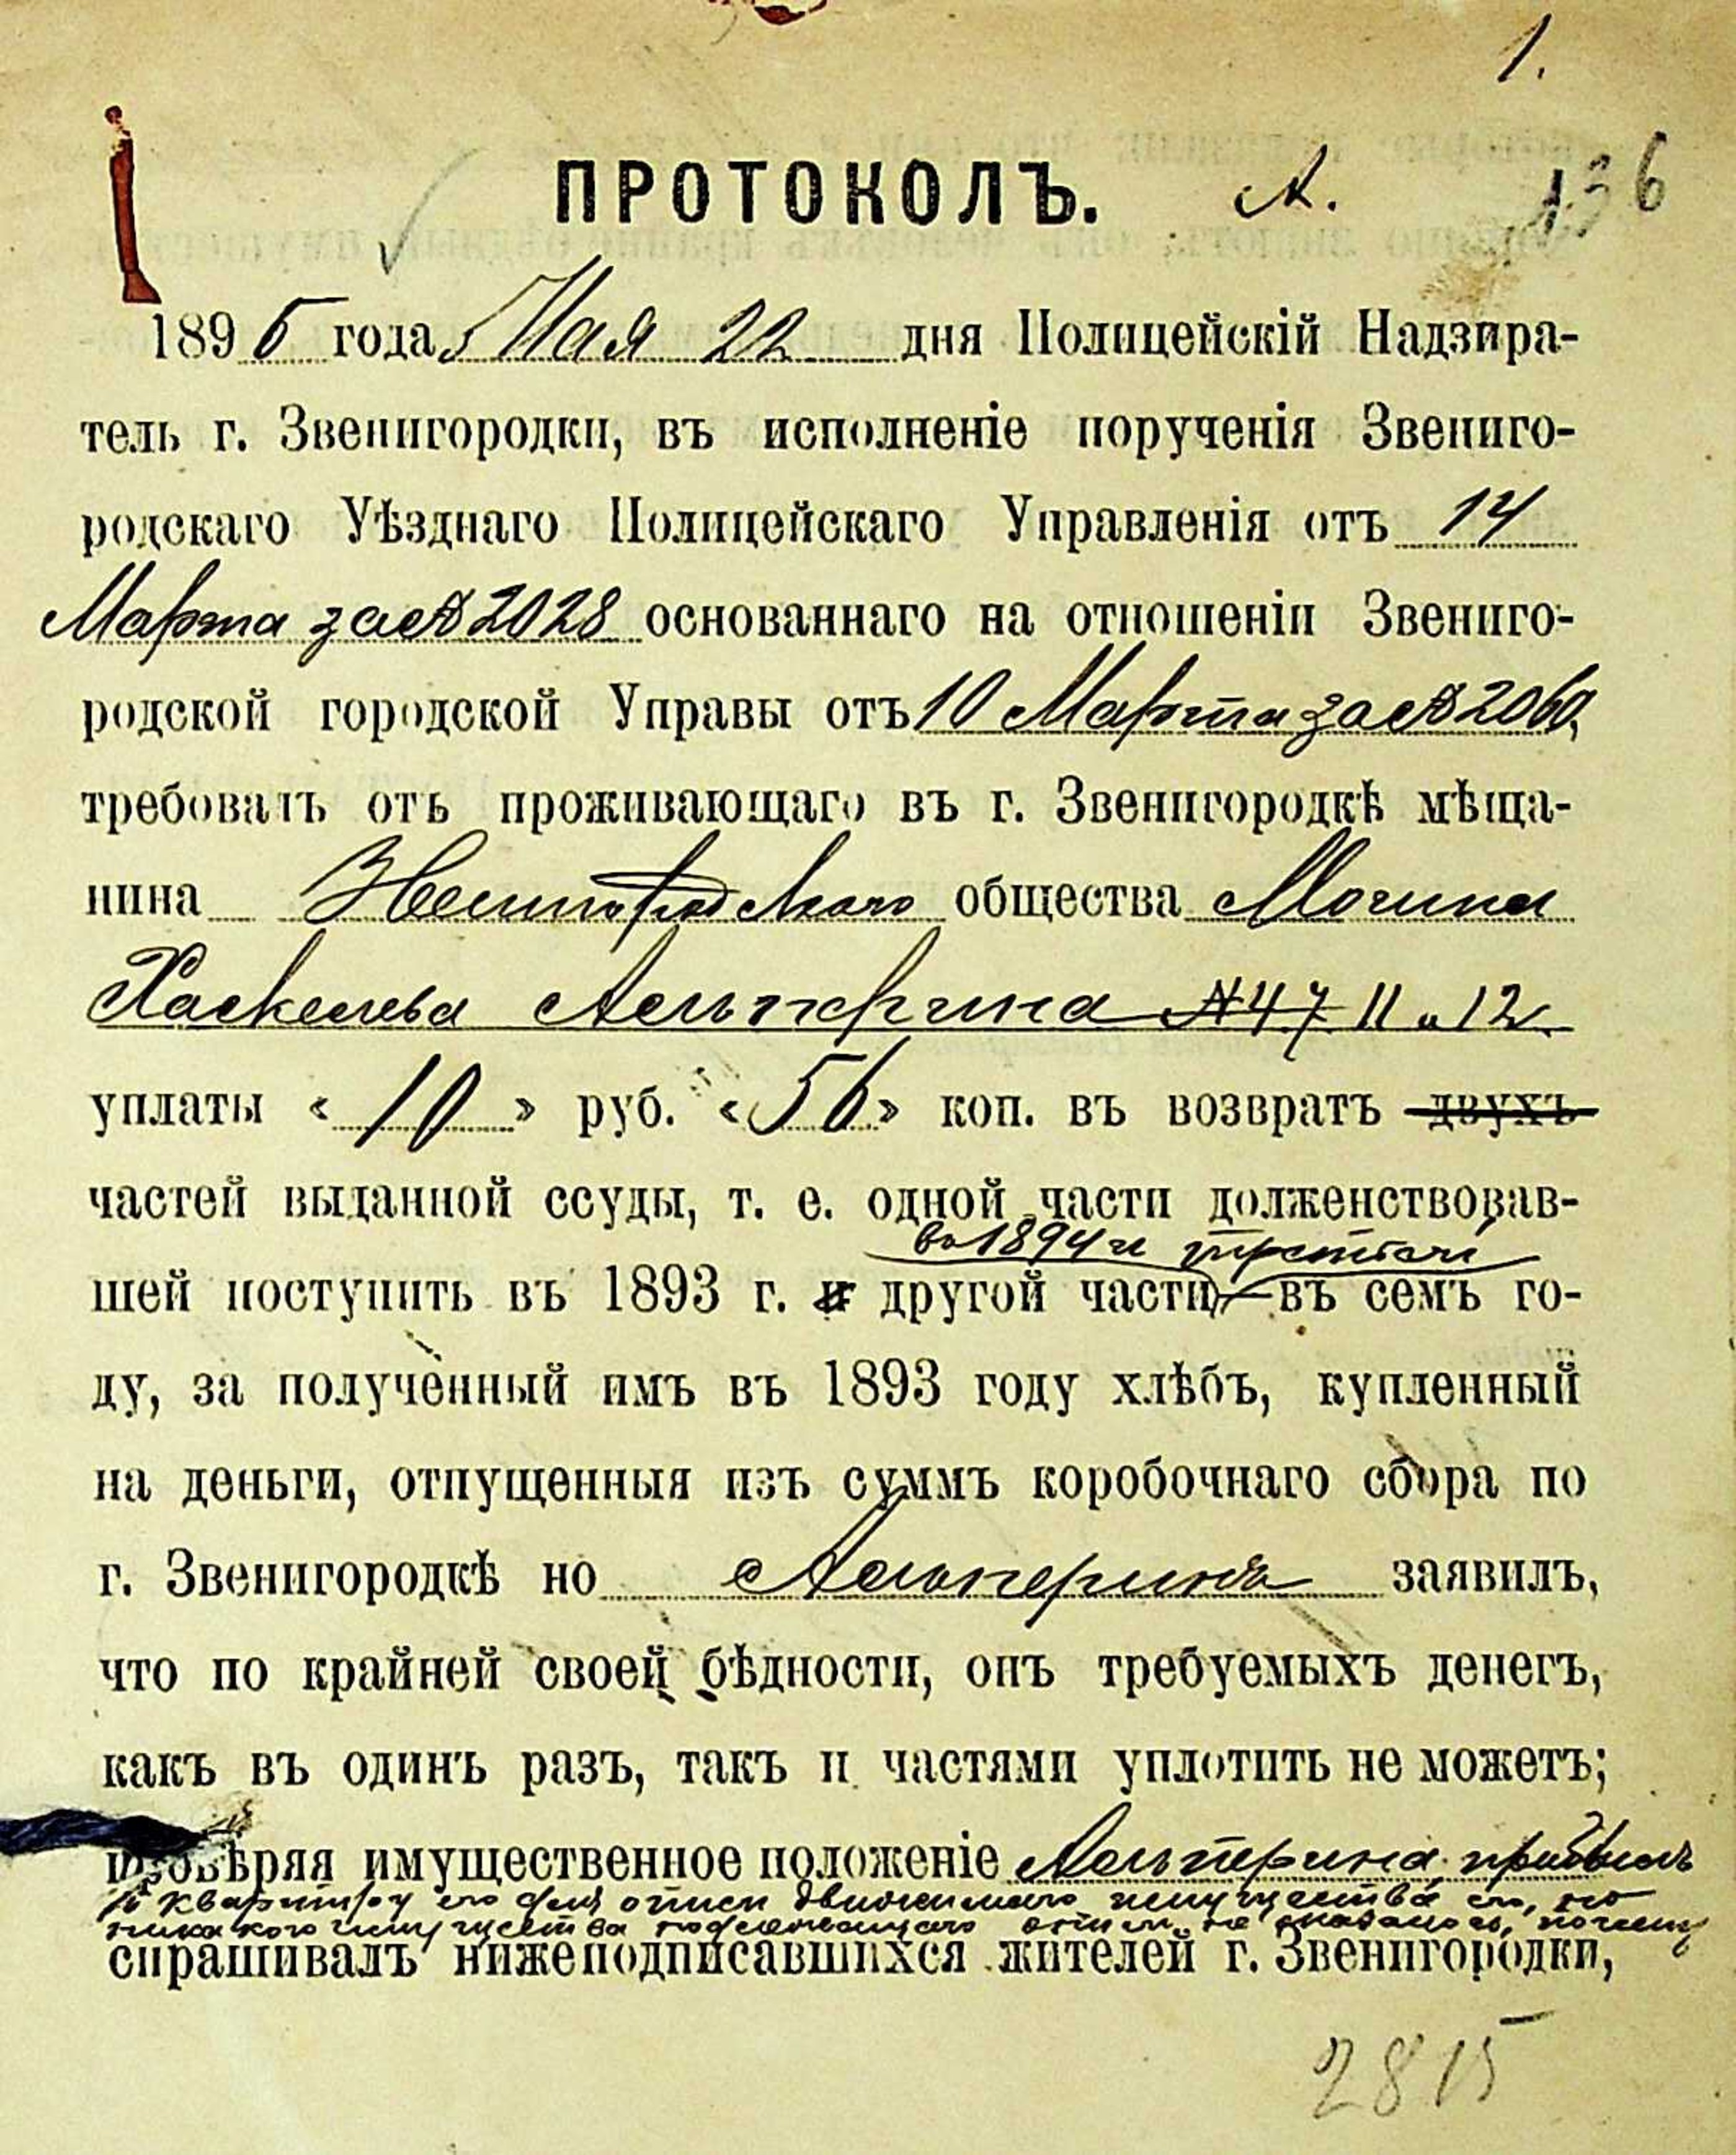 1.
ПРОТОКОЛЪ. А. 136
1895 года Мая 22 дня Полицейскій Надзира-
тель г. Звенигородки, въ исполненіе порученія Звениго-
родскаго Уѣзднаго Полицейскаго Управленія отъ 14
Марта за № 2028 основаннаго на отношеніи Звениго-
родской городской Управы отъ 10 Марта за № 2060,
требовалъ отъ проживающаго въ г. Звенигородкѣ мѣща-
нина общества
Хаскелева Альперина № 47 11 и 12
уплаты « 10 » руб. « 56 » коп. въ возвратъ двухъ
частей выданной ссуды, т. е. одной части долженствовав-
въ 1894 и третьей
шей поступить въ 1893 г. и другой части въ семъ го-
ду, за полученный имъ въ 1893 году хлѣбъ, купленный
на деньги, отпущенныя изъ суммъ коробочнаго сбора по
г. Звенигородкѣ но Альперинъ заявилъ,
что по крайней своей бѣдности, онъ требуемыхъ денегъ,
какъ въ одинъ разъ, такъ и частями уплотить не можетъ;
провѣряя имущественное положеніе Альперина, прибылъ
въ квартиру его для описи движимаго имущества его, но
никакого имущества подлежащаго описи не оказалось, почему
спрашивалъ нижеподписавшихся жителей г. Звенигородки,
2815